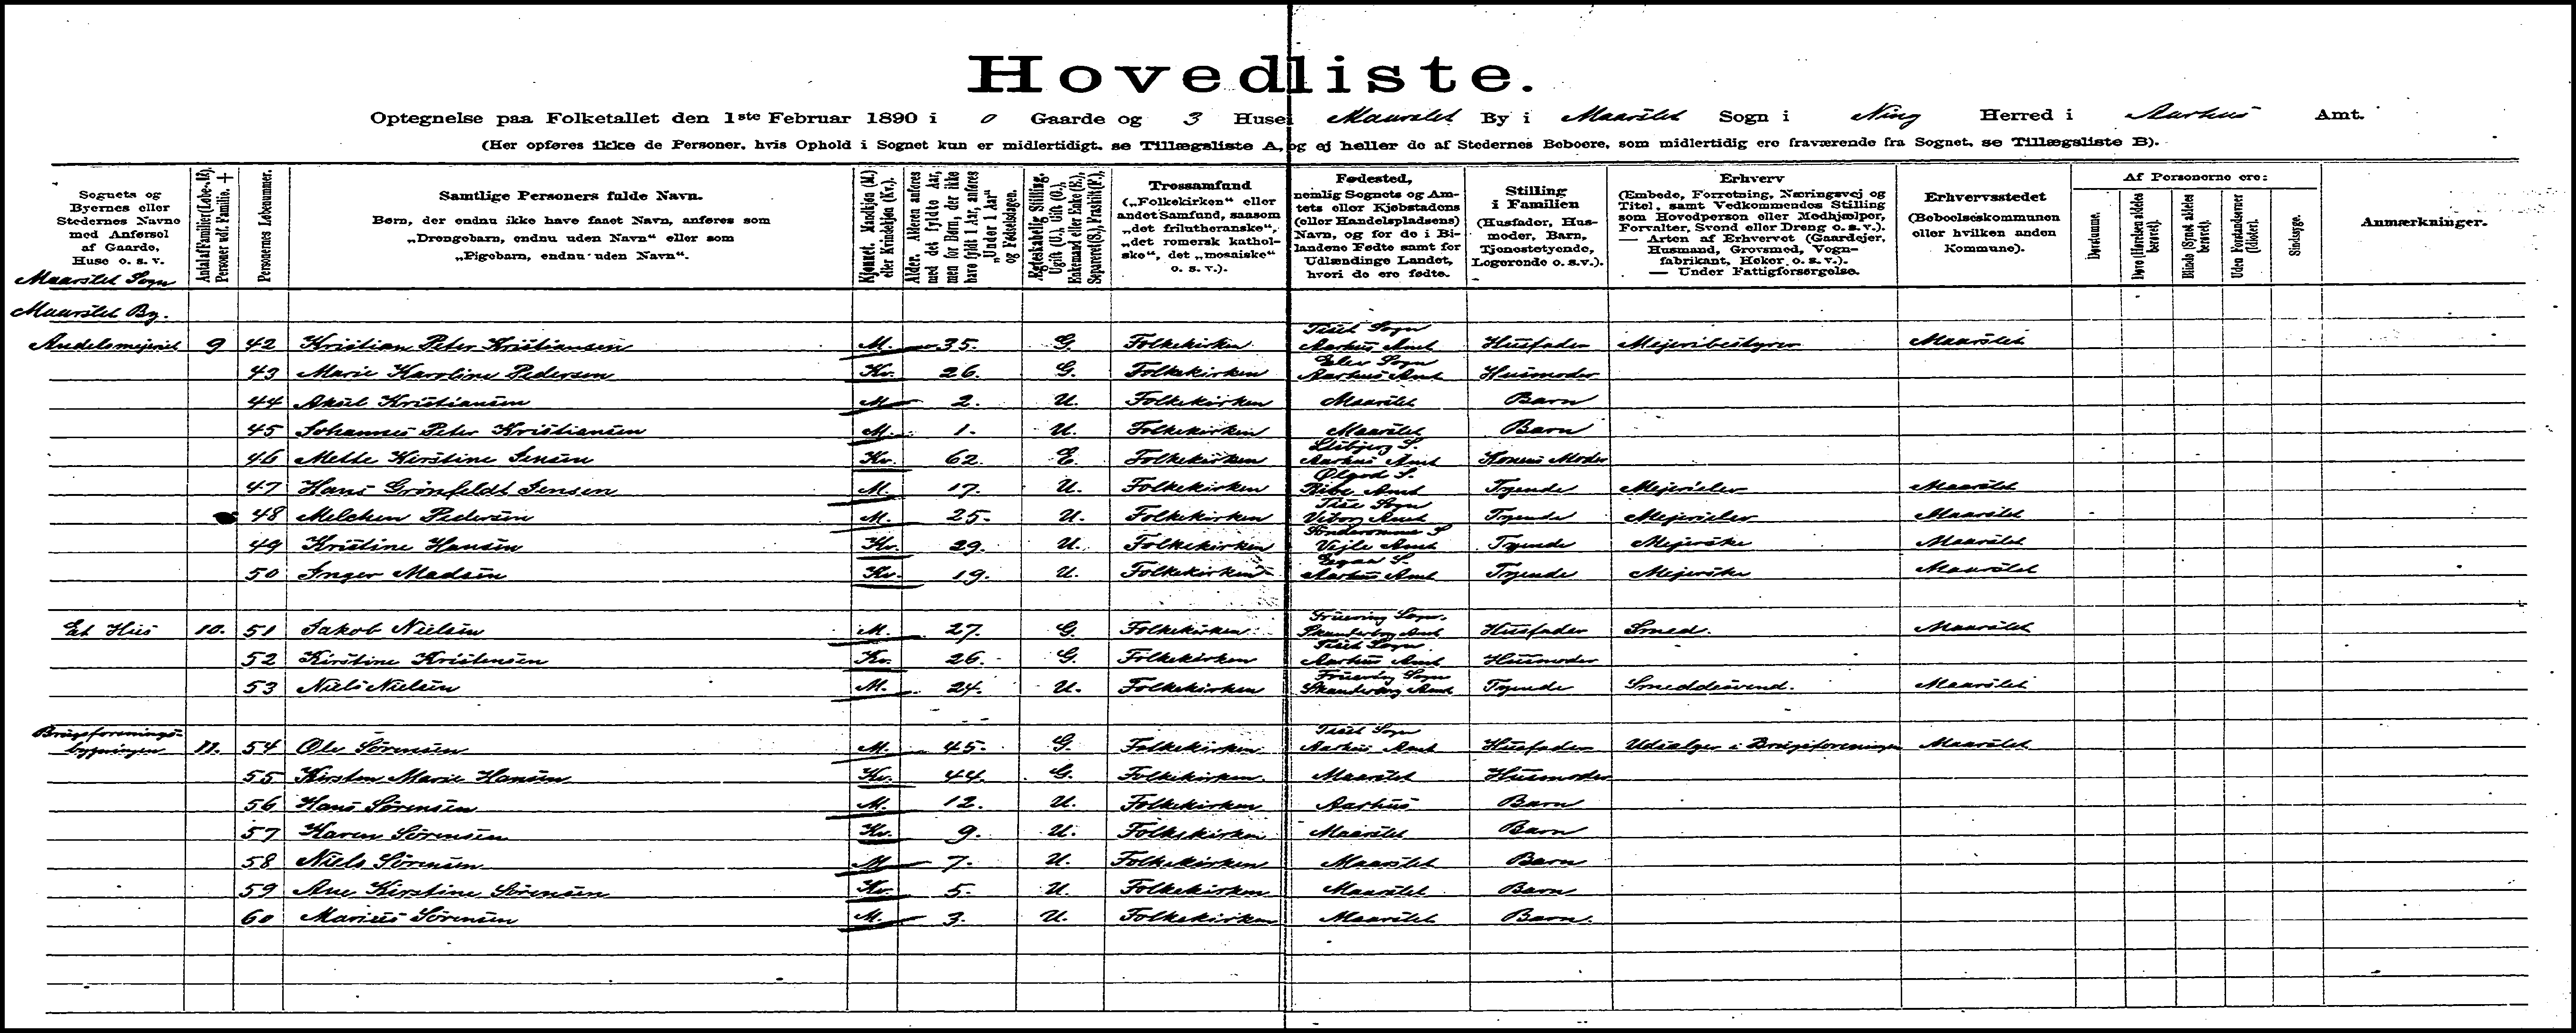 Hovedliste.
Optegnelse paa Folketallet den 1ste Februar 1890 i 0 Gaarde og 3 Huse i Maarslet By i Maarslet Sogn i Ning Herred i Aarhus Amt.
(Her opføres ikke de Personer, hvis Ophold i Sognet kun er midlertidigt, se Tillægsliste A, og ej heller de af Stedernes Beboere, som midlertidig ere fraværende fra Sognet, se Tillægsliste B).
Sognets og Byernes eller Stedernes Navne med Anførsel af Gaarde, Huse o. s. v.
Antal af Familier (Løbe-№). Personer udf. Familie. +
Personernes Løbenummer.
Samtlige Personers fulde Navn.
Børn, der endnu ikke have faaet Navn, anføres som „Drengebarn, endnu uden Navn“ eller som „Pigebarn, endnu uden Navn“.
Kjønnet. Mandkjøn (M.) eller Kvindekjøn (Kv.).
Alder. Alderen anføres med det fyldte Aar, men for Børn, der ikke have fyldt 1 Aar, anføres „Under 1 Aar“ og Fødselsdagen.
Ægteskabelig Stilling. Ugift (U.), Gift (G.), Enkemand eller Enke (E.), Separeret (S.), Fraskilt (F.).
Trossamfund („Folkekirken“ eller andet Samfund, saasom „det frilutheranske“, „det romersk katholske“, det „mosaiske“ o. s. v.).
Fødested, nemlig Sognets og Amtets eller Kjøbstadens (eller Handelspladsens) Navn, og for de i Bilandene Fødte samt for Udlændinge Landet, hvori de ere fødte.
Stilling i Familien (Husfader, Husmoder, Barn, Tjenestetyende, Logerende o. s. v.).
Erhverv (Embede, Forretning, Næringsvej og Titel, samt Vedkommendes Stilling som Hovedperson eller Medhjælper, Forvalter, Svend eller Dreng o. s. v.). — Arten af Erhvervet (Gaardejer, Husmand, Grovsmed, Vognfabrikant, Høker o. s. v.). — Under Fattigforsørgelse.
Erhvervsstedet (Beboelseskommunen eller hvilken anden Kommune).
Af Personerne ere:
Døvstumme.
Døve (Hørelsen aldeles berøvet).
Blinde (Synet aldeles berøvet).
Uden Forstandsevner (Idioter).
Sindssyge.
Anmærkninger.
Maarslet Sogn
Maarslet By.
Andelsmejeriet 9 42 Kristian Peter Kristiansen M. 35. G. Folkekirken Tiset Sogn Aarhus Amt Husfader Mejeribestyrer Maarslet
43 Marie Karoline Pedersen Kv. 26. G. Folkekirken Elev Sogn Aarhus Amt Husmoder
44 Aksel Kristiansen M 2. U. Folkekirken Maarslet Barn
45 Johannes Peter Kristiansen M. 1. U. Folkekirken Maarslet Barn
46 Mette Kirstine Jensen Kv. 62. E. Folkekirken Lisbjerg S. Aarhus Amt Konens Moder
47 Hans Grønfeldt Jensen M. 17. U. Folkekirken Ølgod S. Ribe Amt Tyende Mejerielev Maarslet
48 Melchen Pedersen M. 25. U. Folkekirken Tise Sogn Viborg Amt Tyende Mejerielev Maarslet
49 Kristine Hansen Kv. 29. U. Folkekirken Sønderomme S Vejle Amt Tyende Mejerske Maarslet
50 Inger Madsen Kv. 19. U. Folkekirken Egaa S. Aarhus Amt Tyende Mejerske Maarslet
Et Hus 10. 51 Jakob Nielsen M. 27. G. Folkekirken Fruering Sogn. Skanderborg Amt Husfader Smed. Maarslet
52 Kirstine Kristensen Kv. 26. G. Folkekirken Tiset Sogn. Aarhus Amt Husmoder
53 Niels Nielsen M. 24. U. Folkekirken Fruering Sogn Skanderborg Amt Tyende Smeddesvend. Maarslet
Brugsforenings-
bygningen 11. 54 Ole Sørensen M. 45. G. Folkekirken Tiset Sogn Aarhus Amt Husfader Udsalger i Brugsforeningen Maarslet
55 Kirsten Marie Hansen Kv. 44. G. Folkekirken. Maarslet Husmoder
56 Hans Sørensen M. 12. U. Folkekirken Aarhus Barn
57 Karen Sørensen Kv. 9. U. Folkekirken Maarslet Barn
58 Niels Sørensen M 7. U. Folkekirken Maarslet Barn
59 Ane Kirstine Sørensen Kv. 5. U. Folkekirken Maarslet Barn
60 Marius Sørensen M. 3. U. Folkekirken Maarslet Barn.